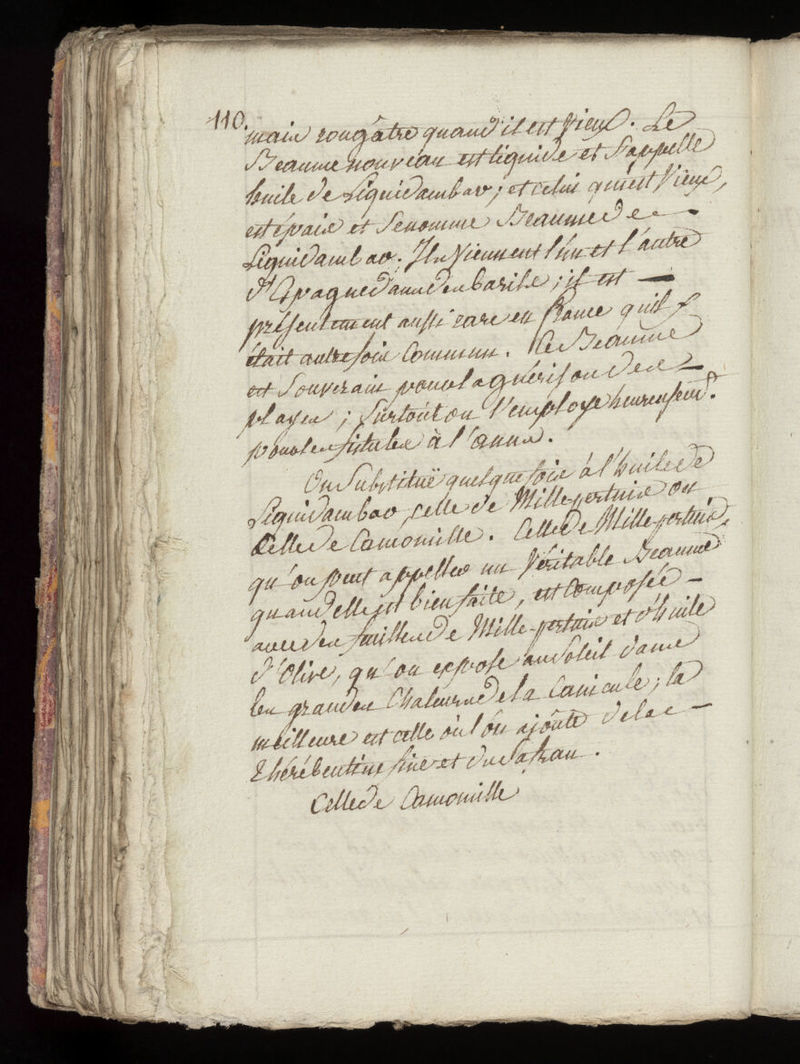 110.
mais rougâtre quand il est Vieux. Le
Beaume nouveau est liquide et s'appelle
huile de Liquidambar; et celui qui est Vieux,
est épais et se nomme Beaume de
Liquidambar. Ils Viennent l'un et l'autre
d'Espagne dans des barils; il est —
présentement aussi rare en France qu'il
était autrefois Commun. Ce Beaume
est Souverain pour la guérison des —
playes; surtout on l'employe heureusemt.
pour les fistules à l'anus.
On Substituë quelquefois à l'huile de
Liquidambar, celle de Mille-pertuis ou
Celle de Camomille. Celle de Mille-pertuis,
qu'on peut appeller un Véritable Beaume
quand elle est bien faite, est Composée —
avec des feuilles de Mille-pertuis et d'huile
d'Olive, qu'on expose au Soleil dans
les grandes Chaleurs de la Canicule; la
meilleure est celle où l'on ajoûte de la —
Thérébentine fine et du Safran.
Celle de Camomille